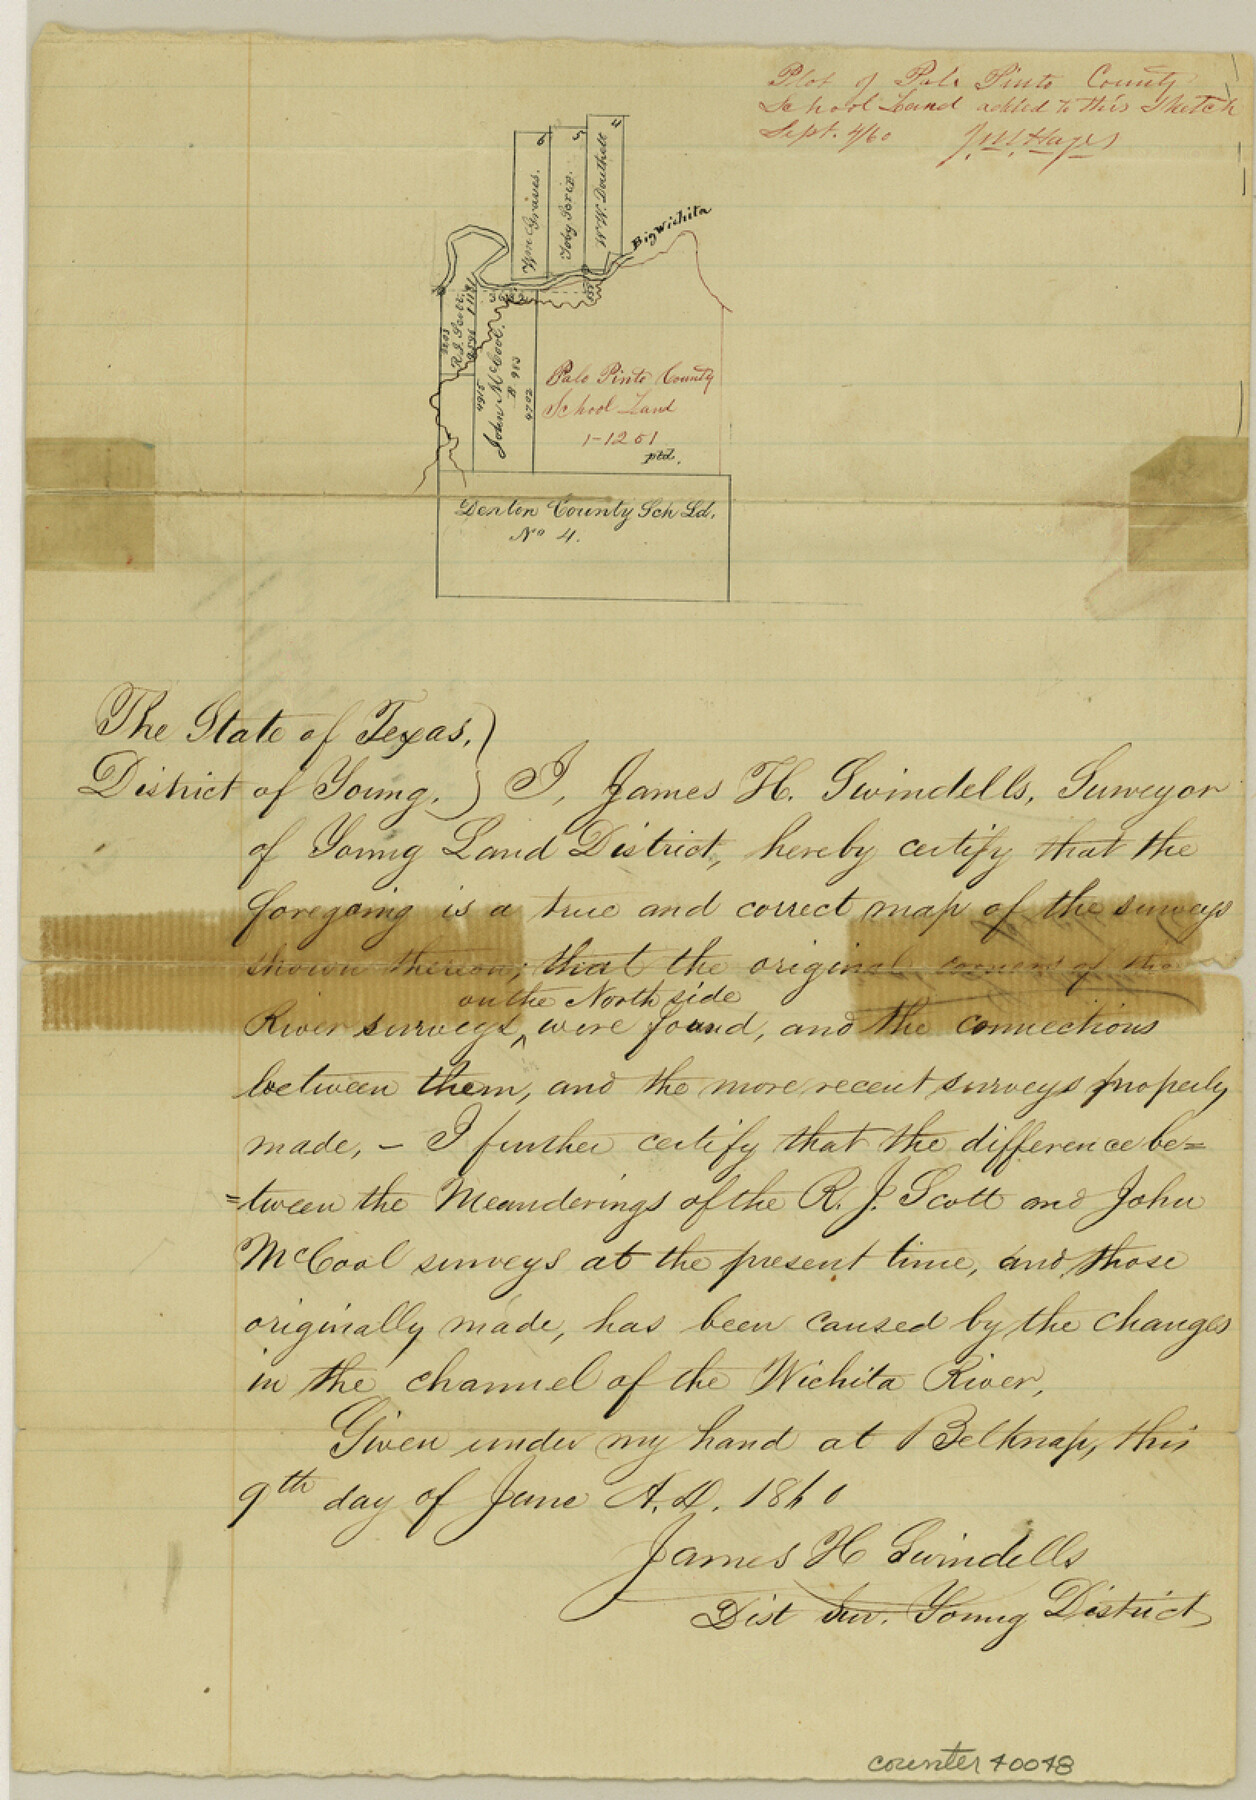 Plot of Palo Pinto County
School Land added to this Sketch
Sept. 4/60 J.M. Hays
6
5
4
Wm Graves.
Toby Scrip.
W.W. Douthett
Big Wichita
R.J. Scott.
4915
John McCool.
B 983
4702
Palo Pinto County
School Land
1-1201
ptd.
Denton County Sch Ld.
No 4.
The State of Texas,
District of Young. I, James H. Swindells, Surveyor
of Young Land District, hereby certify that the
foregoing is a true and correct map of the surveys
shown thereon; that the original corners of the
on the North side
River surveys, ^ were found, and the connections
between them, and the more recent surveys properly
made, – I further certify that the difference be=
=tween the Meanderings of the R. J. Scott and John
McCool surveys at the present time, and those
originally made, has been caused by the changes
in the channel of the Wichita River,
Given under my hand at Belknap, this
9th day of June A.D. 1860
James H Swindells
Dist Sur. Young District
counter 40048